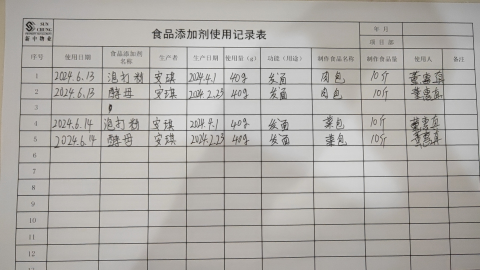 SUN CHUNG
食品添加剂使用记录表
年 月
项目部
序号 使用日期 食品添加剂名称 生产者 生产日期 使用量（g） 功能（用途） 制作食品名称 制作食品量 使用人 备注
1 2024.6.13 泡打粉 安琪 2024.4.1 40g 发面 肉包 10斤
2 2024.6.13 酵母 安琪 2024.2.23 40g 发面 肉包 10斤
3
4 2024.6.14 泡打粉 安琪 2024.4.1 40g 发面 菜包 10斤
5 2024.6.14 酵母 安琪 2024.2.23 40g 发面 菜包 10斤
6
7
8
9
10
11
12